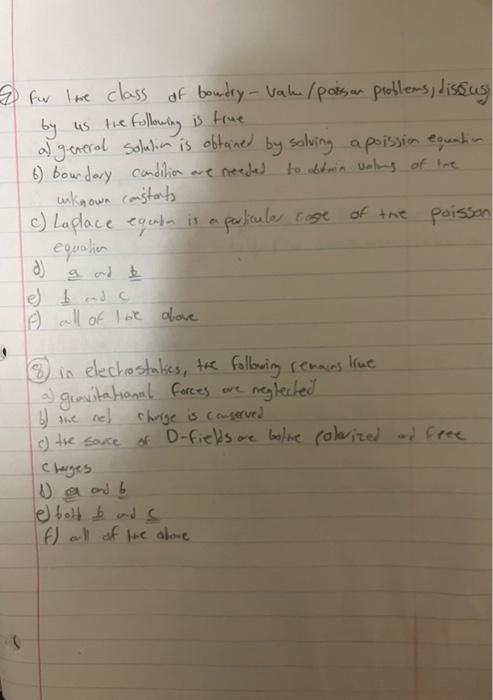 7) for the class of boundry - Value/poisson problems, discuss
by us the following is true
a) general solution is obtained by solving a poission equation
b) boundary condition are needed to obtain values of the
unknown constants
c) Laplace equation is a particular case of the poisson
equation
d) a and b
e) b and c
f) all of the above
8) in electrostatics, the following remains true
a) gravitational forces are neglected
b) the net charge is conserved
c) the source of D-fields are polarized and free
charges
d) a and b
e) both b and c
f) all of the above